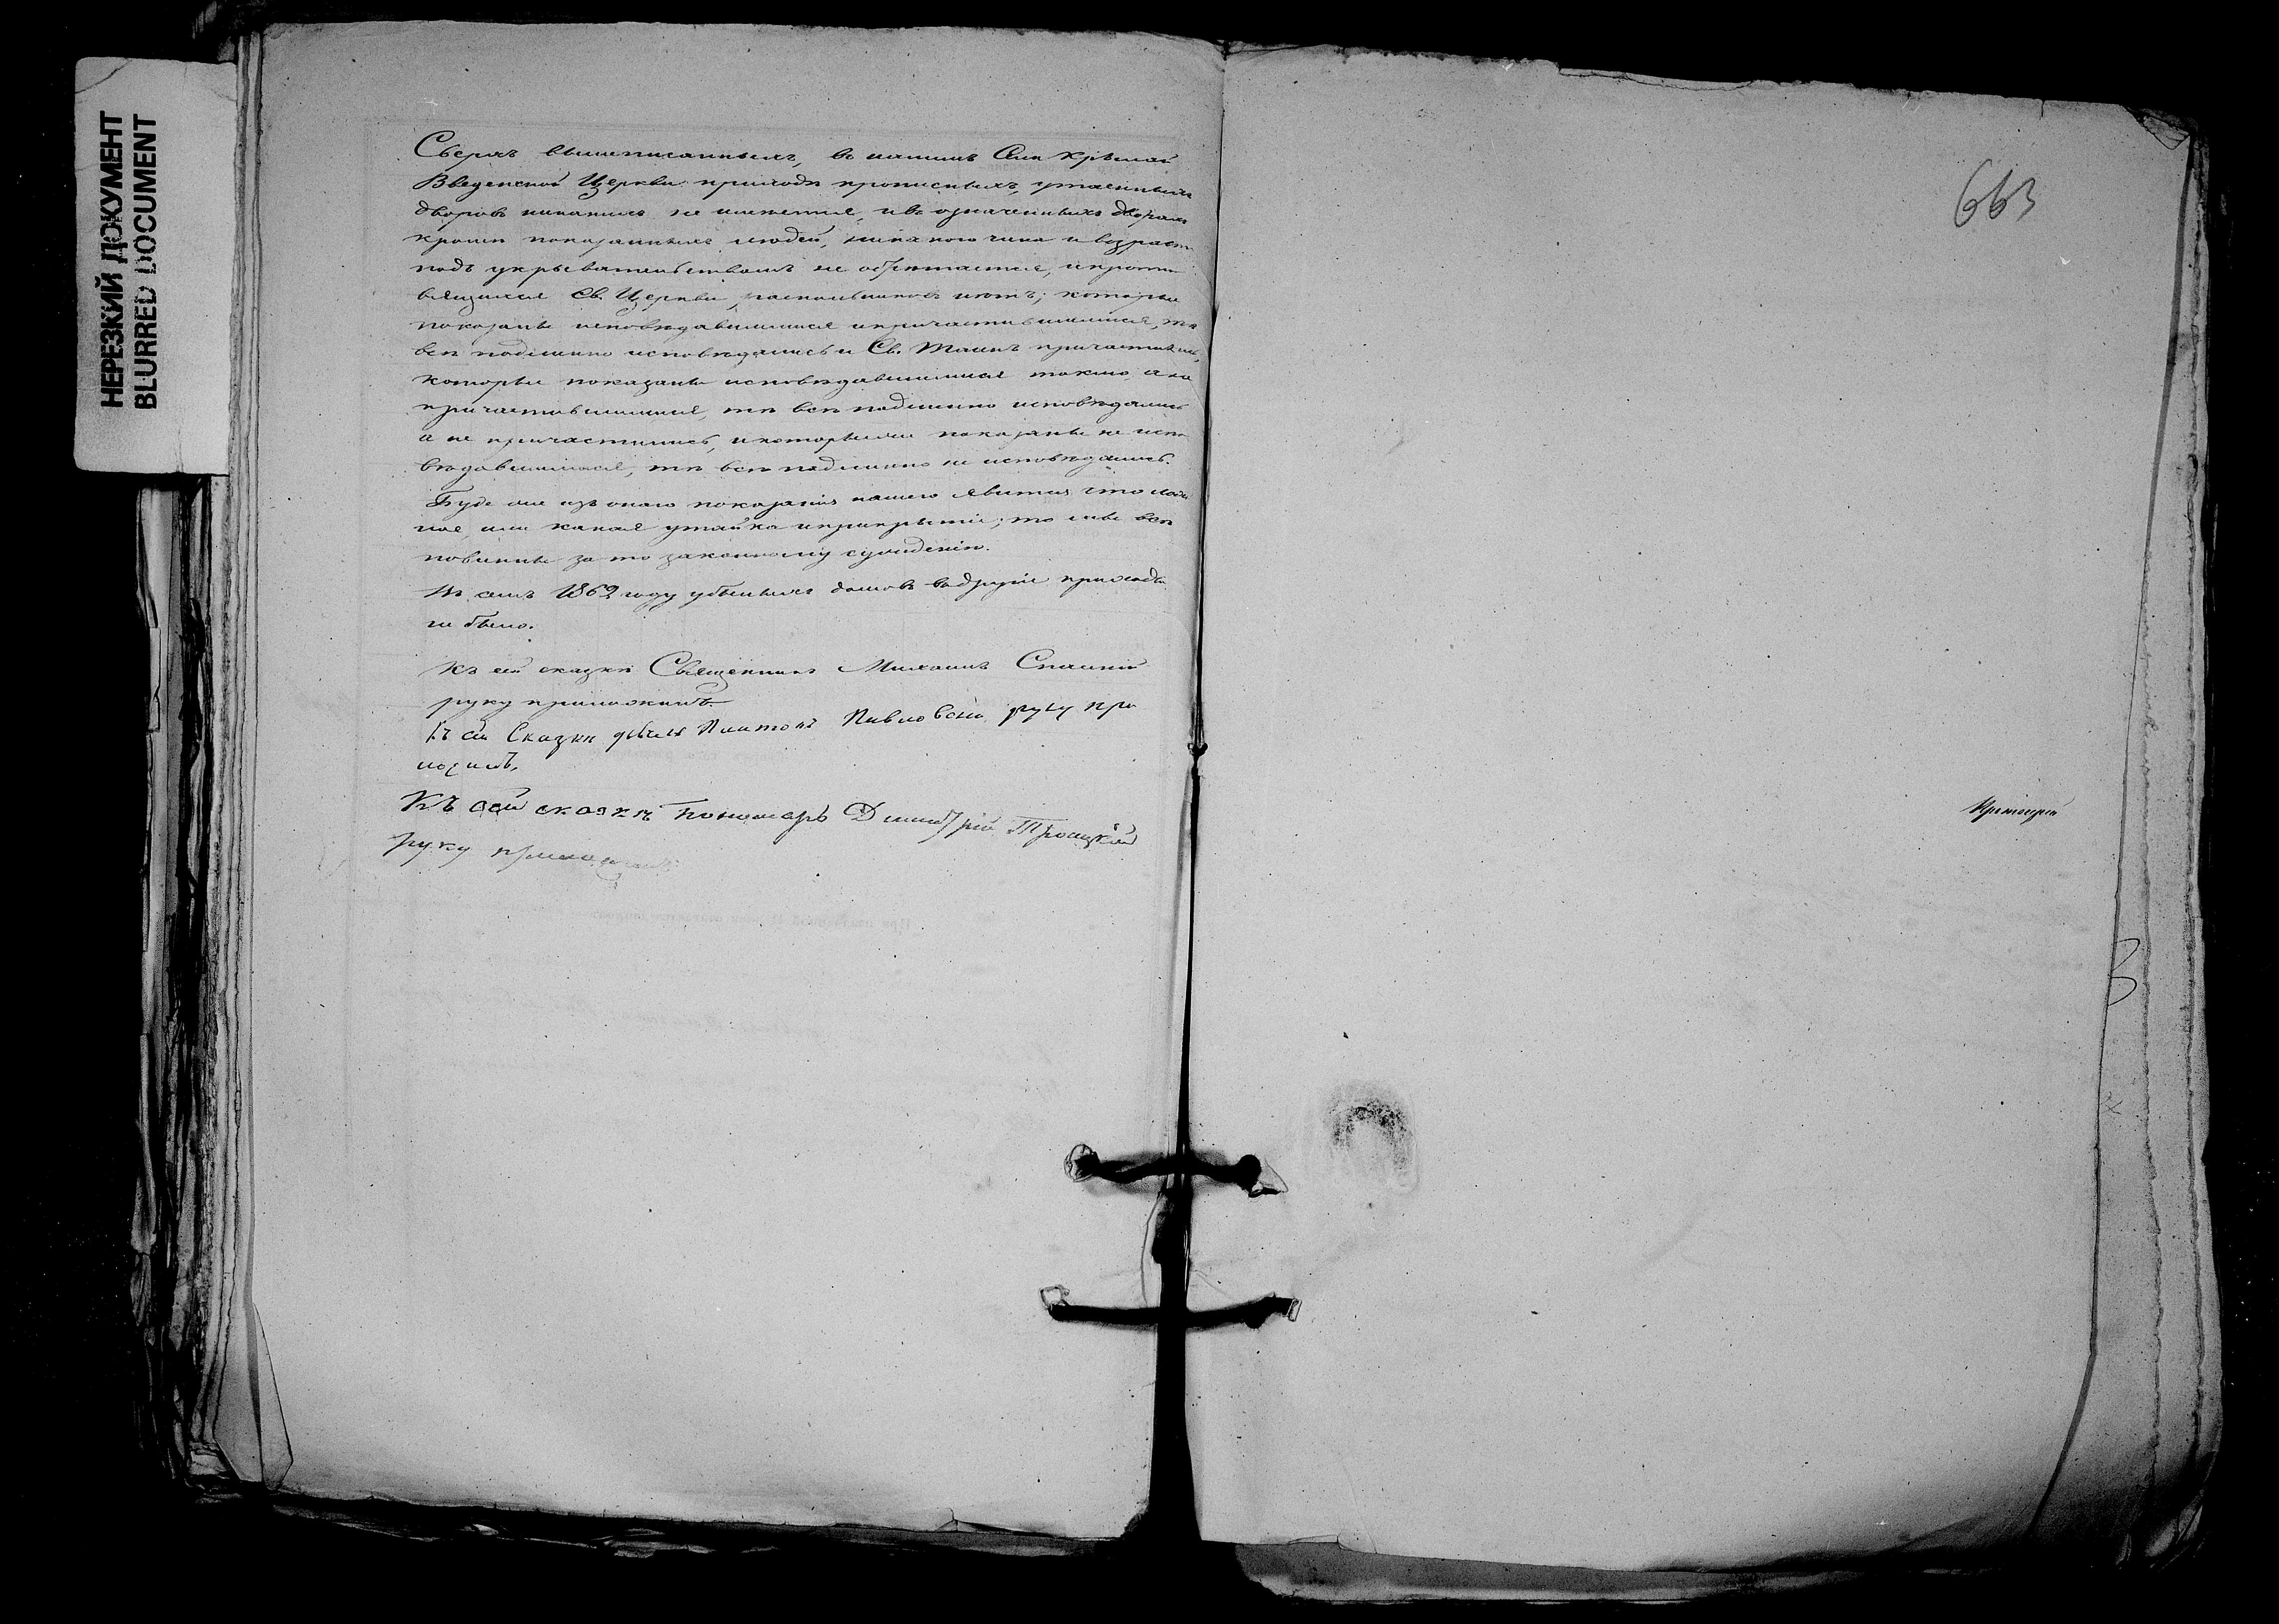 НЕРЕЗКИЙ ДОКУМЕНТ
BLURRED DOCUMENT
Сверхъ вышеписанныхъ, въ нашемъ
Введенской Церкви приходѣ прописныхъ, утаенныхъ
дворовъ никакихъ не имѣется, и въ означенныхъ дворахъ
кромѣ показанныхъ людей, никакого чина и возраста
подъ укрывательствомъ не обрѣтается, и проти
вящихся Св. Церкви раскольниковъ нѣтъ; которые
показаны исповѣдавшимися и причастившимися, тѣ
всѣ подлинно исповѣдались и Св. Таинъ причастились,
которые показаны исповѣдавшимися токмо, а не
причастившимися, тѣ всѣ подлинно исповѣдались
а не причастились, и которые показаны не испо
вѣдавшимися, тѣ всѣ подлинно не исповѣдались.
Буде же изъ онаго показанія нашего явится что лож
ное, или какая утайка и прикрытіе; то мы всѣ
повинны за то законному сужденію.
Въ семъ 1862 году убылыхъ домовъ въ другіе приходы
не было.
Къ сей сказкѣ Священникъ Михаилъ Спаскій
руку приложилъ.
Къ сей Сказкѣ дьячекъ Платонъ руку при
ложилъ,
Къ сей сказкѣ Пономарь Димитрій Троицкій
руку приложилъ
663